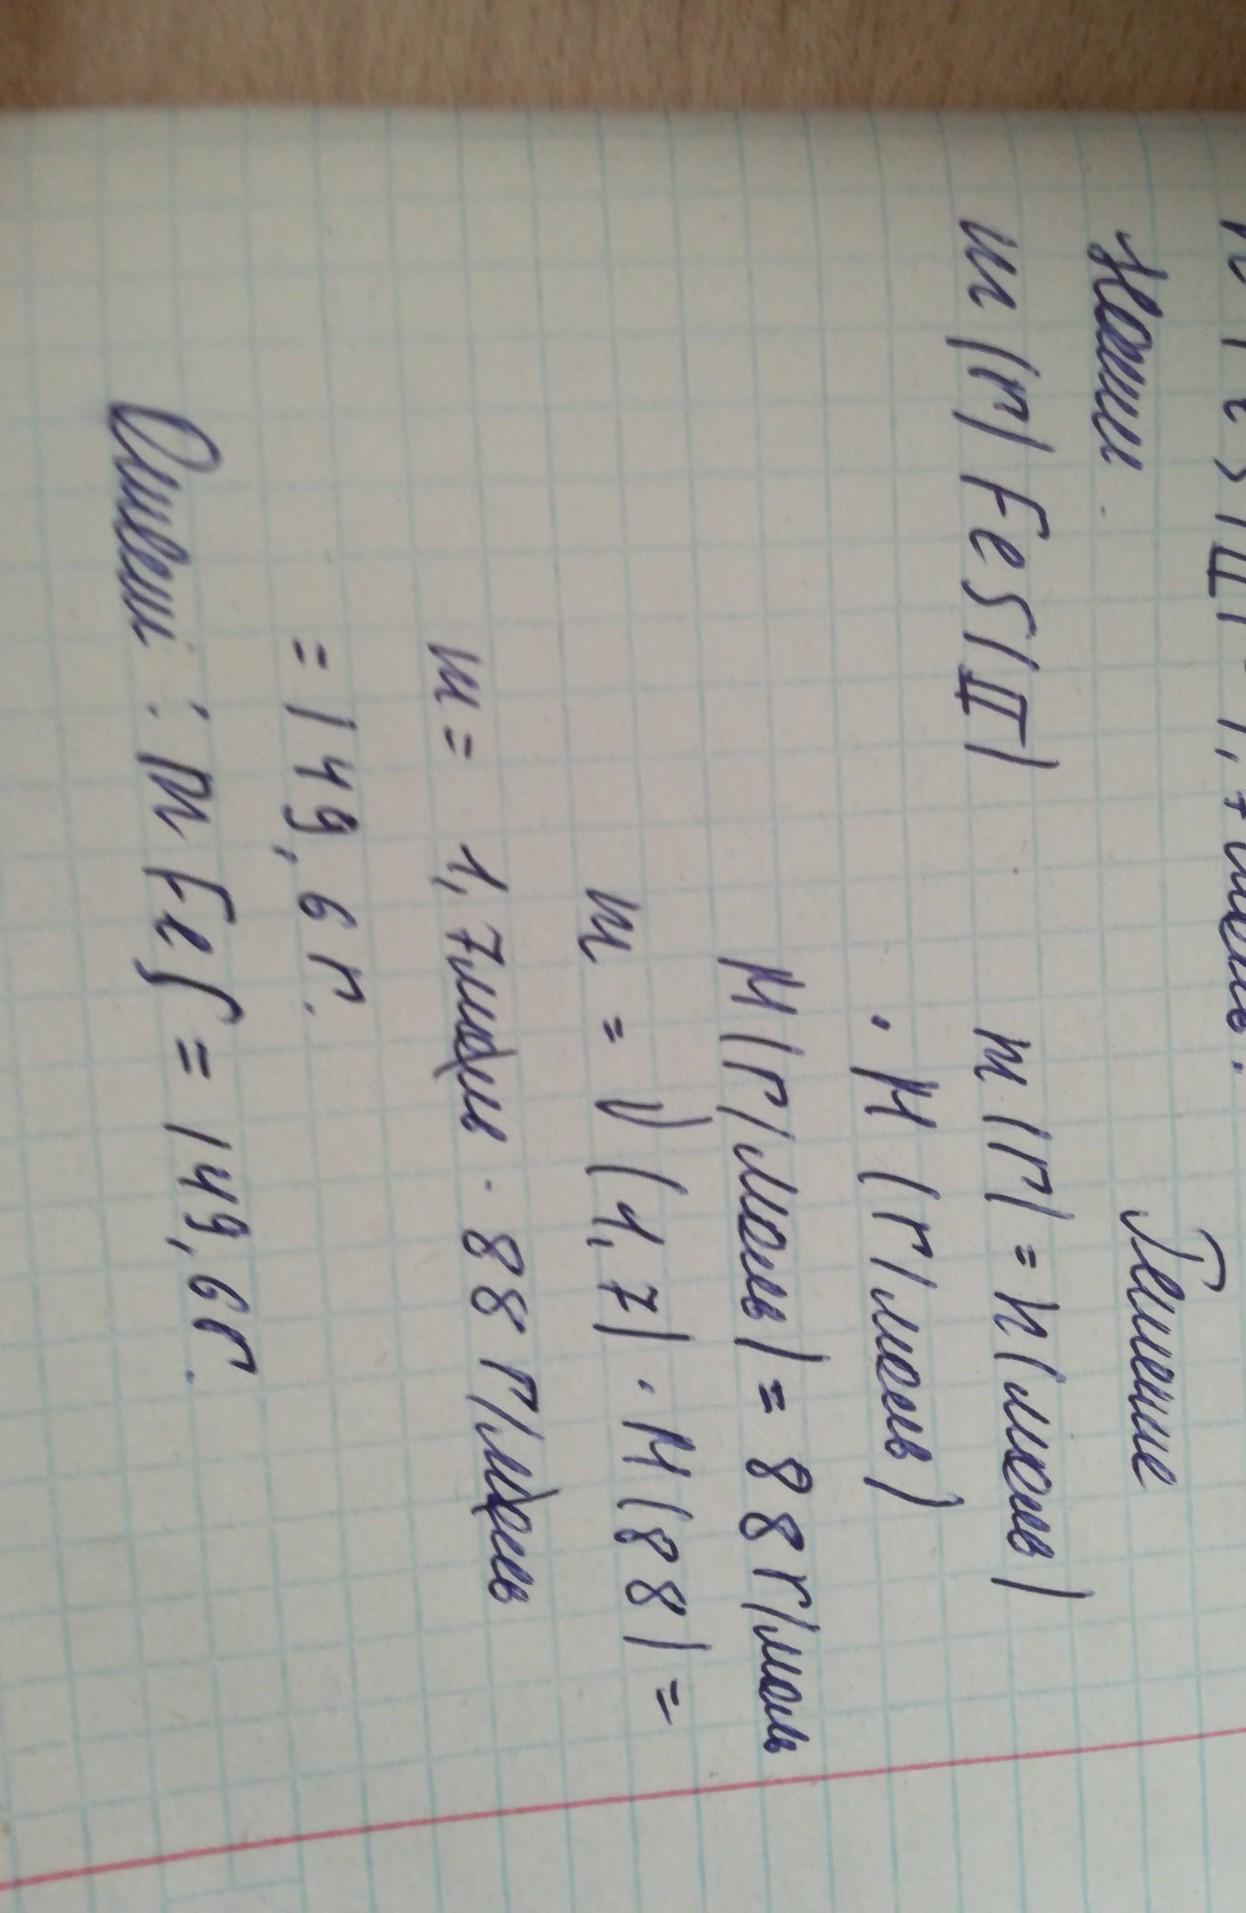 n FeS(II) - 1,7 моль.
Найти. Решение
m (г) FeS(II) m (г) = n (моль)
· M (г/моль)
M (г/моль) = 88 г/моль
m = ν (1,7) · M (88) =
m = 1,7 моль · 88 г/моль
= 149,6 г.
Ответ: m FeS = 149,6 г.